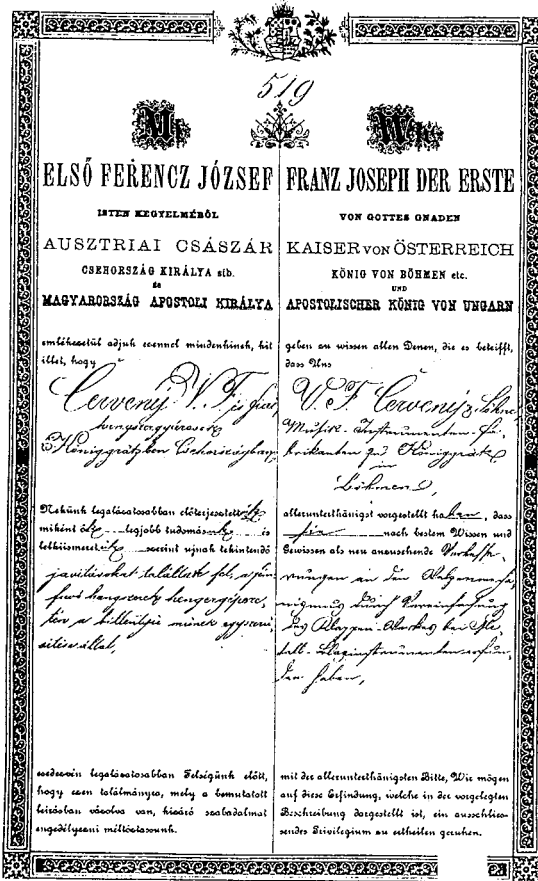 519
Mi
ELSŐ FERENCZ JÓZSEF
ISTEN KEGYELMÉBŐL
AUSZTRIAI CSÁSZÁR
CSEHORSZÁG KIRÁLYA stb.
és
MAGYARORSZÁG APOSTOLI KIRÁLYA
emlékezetül adjuk ezennel mindenkinek, kit
illet, hogy
Červený V. F. és fiai,
hangszergyárosok
Königgrätzben Csehországban,
Nekünk legalázatosabban előterjesztették
miként ők legjobb tudomásuk és
lelkiismeretük szerint ujnak tekintendő
javitásokat találtak fel, a
ezedezvén legalázatosabban Felségünk előtt,
hogy ezen találmányra, mely a bemutatott
leirásban vázolva van, kizáró szabadalmat
engedélyezni méltóztassunk.
Wir
FRANZ JOSEPH DER ERSTE
VON GOTTES GNADEN
KAISER VON ÖSTERREICH
KÖNIG VON BÖHMEN etc.
UND
APOSTOLISCHER KÖNIG VON UNGARN
geben zu wissen allen Denen, die es betrifft,
dass Uns
V. F. Červený & Söhne,
Musik-Instrumenten-Fa-
brikanten zu Königgrätz
in
Böhmen,
allerunterthänigst vorgestellt haben, dass
sie nach bestem Wissen und
Gewissen als neu anzusehende Verbesse-
rungen an dem Walzenmecha-
nismus durch Vereinfachung
des Klappen-Werkes bei Me-
tall-Blasinstrumenten erfun-
den haben,
mit der allerunterthänigsten Bitte, Wir mögen
auf diese Erfindung, welche in der vorgelegten
Beschreibung dargestellt ist, ein ausschlies-
sendes Privilegium zu ertheilen geruhen.